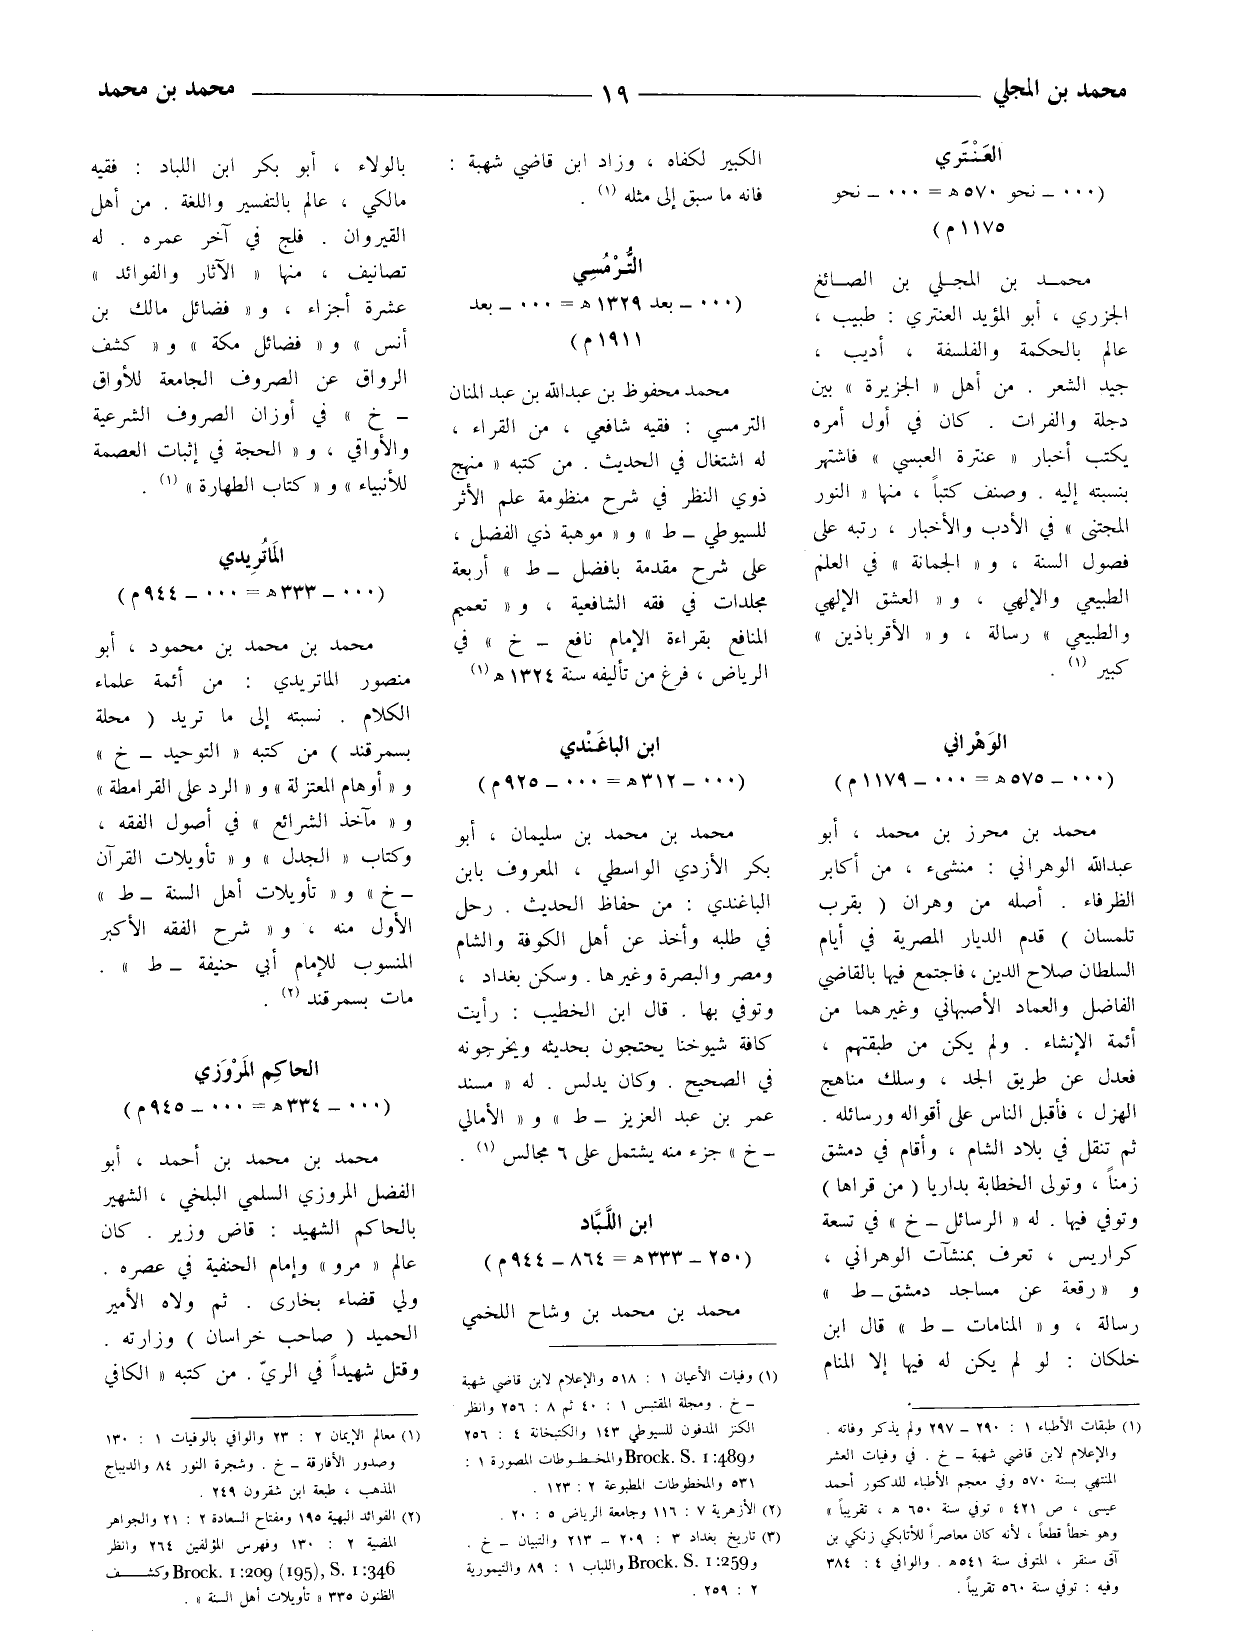 محمد بن المجلي
١٩
محمد بن محمد
العَنْتَري
(٠٠٠ ـ نحو ٥٧٠ هـ = ٠٠٠ ـ نحو
١١٧٥ م)
محمـد بن المجـلي بن الصـائغ
الجزري ، أبو المؤيد العنتري : طبيب ،
عالم بالحكمة والفلسفة ، أديب ،
جيد الشعر . من أهل « الجزيرة » بين
دجلة والفرات . كان في أول أمره
يكتب أخبار « عنترة العبسي » فاشتهر
بنسبته إليه . وصنف كتباً ، منها « النور
المجتنى » في الأدب والأخبار ، رتبه على
فصول السنة ، و « الجمانة » في العلم
الطبيعي والإلهي ، و « العشق الإلهي
والطبيعي » رسالة ، و « الأقرباذين »
كبير (١) .
الوَهْراني
(٠٠٠ ـ ٥٧٥ هـ = ٠٠٠ ـ ١١٧٩ م)
محمد بن محرز بن محمد ، أبو
عبدالله الوهراني : منشىء ، من أكابر
الظرفاء . أصله من وهران ( بقرب
تلمسان ) قدم الديار المصرية في أيام
السلطان صلاح الدين ، فاجتمع فيها بالقاضي
الفاضل والعماد الأصبهاني وغيرهما من
أئمة الإنشاء . ولم يكن من طبقتهم ،
فعدل عن طريق الجد ، وسلك مناهج
الهزل ، فأقبل الناس على أقواله ورسائله .
ثم تنقل في بلاد الشام ، وأقام في دمشق
زمناً ، وتولى الخطابة بداريا ( من قراها )
وتوفي فيها . له « الرسائل ـ خ » في تسعة
كراريس ، تعرف بمنشآت الوهراني ،
و « رقعة عن مساجد دمشق ـ ط »
رسالة ، و « المنامات ـ ط » قال ابن
خلكان : لو لم يكن له فيها إلا المنام
(١) طبقات الأطباء ١ : ٢٩٠ ـ ٢٩٧ ولم يذكر وفاته .
والإعلام لابن قاضي شهبة ـ خ . في وفيات العشر
المنتهي بسنة ٥٧٠ وفي معجم الأطباء للدكتور أحمد
عيسى ، ص ٤٢١ « توفي سنة ٦٥٠ هـ ، تقريباً »
وهو خطأ قطعاً ، لأنه كان معاصراً للأتابكي زنكي بن
آق سنقر ، المتوفى سنة ٥٤١ هـ . والوافي ٤ : ٣٨٤
وفيه : توفي سنة ٥٦٠ تقريباً .
الكبير لكفاه ، وزاد ابن قاضي شهبة :
فانه ما سبق إلى مثله (١) .
التُّرْمُسِي
(٠٠٠ ـ بعد ١٣٢٩ هـ = ٠٠٠ ـ بعد
١٩١١ م)
محمد محفوظ بن عبدالله بن عبد المنان
الترمسي : فقيه شافعي ، من القراء ،
له اشتغال في الحديث . من كتبه « منهج
ذوي النظر في شرح منظومة علم الأثر
للسيوطي ـ ط » و « موهبة ذي الفضل ،
على شرح مقدمة بافضل ـ ط » أربعة
مجلدات في فقه الشافعية ، و « تعميم
المنافع بقراءة الإمام نافع ـ خ » في
الرياض ، فرغ من تأليفه سنة ١٣٢٤ هـ (١)
ابن الباغَنْدي
(٠٠٠ ـ ٣١٢ هـ = ٠٠٠ ـ ٩٢٥ م)
محمد بن محمد بن سليمان ، أبو
بكر الأزدي الواسطي ، المعروف بابن
الباغندي : من حفاظ الحديث . رحل
في طلبه وأخذ عن أهل الكوفة والشام
ومصر والبصرة وغيرها . وسكن بغداد ،
وتوفي بها . قال ابن الخطيب : رأيت
كافة شيوخنا يحتجون بحديثه ويخرجونه
في الصحيح . وكان يدلس . له « مسند
عمر بن عبد العزيز ـ ط » و « الأمالي
ـ خ » جزء منه يشتمل على ٦ مجالس (١) .
ابن اللَّبَّاد
(٢٥٠ ـ ٣٣٣ هـ = ٨٦٤ ـ ٩٤٤ م)
محمد بن محمد بن وشاح اللخمي
(١) وفيات الأعيان ١ : ٥١٨ والإعلام لابن قاضي شهبة
ـ خ . ومجلة المقتبس ١ : ٤٠ ثم ٨ : ٢٥٦ وانظر
الكنز المدفون للسيوطي ١٤٣ والكتبخانة ٤ : ٢٥٦
و Brock. S. 1:489 والمخطوطات المصورة ١ :
٥٣١ والمخطوطات المطبوعة ٢ : ١٢٣ .
(٢) الأزهرية ٧ : ١١٦ وجامعة الرياض ٥ : ٢٠ .
(٣) تاريخ بغداد ٣ : ٢٠٩ ـ ٢١٣ والتبيان ـ خ .
و Brock. S. 1:259 واللباب ١ : ٨٩ والتيمورية
٢ : ٢٥٩ .
بالولاء ، أبو بكر ابن اللباد : فقيه
مالكي ، عالم بالتفسير واللغة . من أهل
القيروان . فلج في آخر عمره . له
تصانيف ، منها « الآثار والفوائد »
عشرة أجزاء ، و « فضائل مالك بن
أنس » و « فضائل مكة » و « كشف
الرواق عن الصروف الجامعة للأواق
ـ خ » في أوزان الصروف الشرعية
والأواقي ، و « الحجة في إثبات العصمة
للأنبياء » و « كتاب الطهارة » (١) .
المَاتُرِيدي
(٠٠٠ ـ ٣٣٣ هـ = ٠٠٠ ـ ٩٤٤ م)
محمد بن محمد بن محمود ، أبو
منصور الماتريدي : من أئمة علماء
الكلام . نسبته إلى ما تريد ( محلة
بسمرقند ) من كتبه « التوحيد ـ خ »
و « أوهام المعتزلة » و « الرد على القرامطة »
و « مآخذ الشرائع » في أصول الفقه ،
وكتاب « الجدل » و « تأويلات القرآن
ـ خ » و « تأويلات أهل السنة ـ ط »
الأول منه ، و « شرح الفقه الأكبر
المنسوب للإمام أبي حنيفة ـ ط » .
مات بسمرقند (٢) .
الحاكِم المَرْوَزي
(٠٠٠ ـ ٣٣٤ هـ = ٠٠٠ ـ ٩٤٥ م)
محمد بن محمد بن أحمد ، أبو
الفضل المروزي السلمي البلخي ، الشهير
بالحاكم الشهيد : قاض وزير . كان
عالم « مرو » وإمام الحنفية في عصره .
ولي قضاء بخارى . ثم ولاه الأمير
الحميد ( صاحب خراسان ) وزارته .
وقتل شهيداً في الريّ . من كتبه « الكافي
(١) معالم الإيمان ٢ : ٢٣ والوافي بالوفيات ١ : ١٣٠
وصدور الأفارقة ـ خ . وشجرة النور ٨٤ والديباج
المذهب ، طبعة ابن شقرون ٢٤٩ .
(٢) الفوائد البهية ١٩٥ ومفتاح السعادة ٢ : ٢١ والجواهر
المضية ٢ : ١٣٠ وفهرس المؤلفين ٢٦٤ وانظر
Brock. 1:209 (195), S. 1:346 وكشـــف
الظنون ٣٣٥ « تأويلات أهل السنة » .